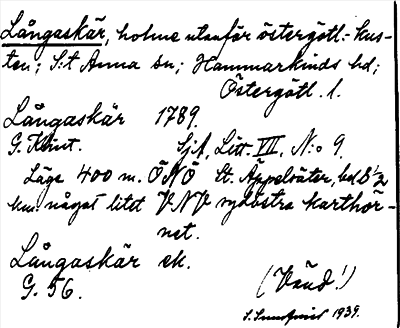 Långaskär, holme utanför östergötl.-kus-
ten; S:t Anna sn; Hammarkinds hd;
Östergötl. l.
Långaskär 1789.
G. Klint. Sjf, Litt. VII, N:o 9.
Läge 400 m. ÖNÖ St. Äppelsäter,
km. något litet VNV sydöstra karthör-
net.
Långaskär ek.
G. 56. (Vänd!)
1939.